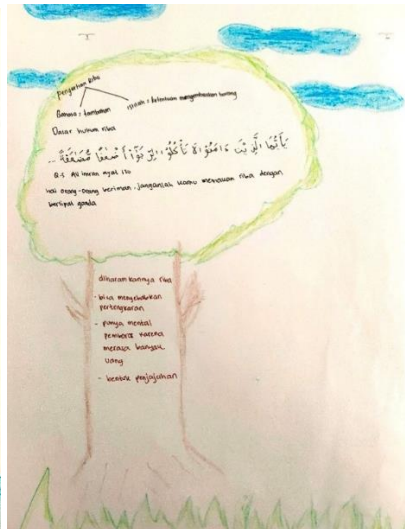 Pengertian Riba
Bahasa : tambahan
istilah : ketentuan mengembalikan barang
Dasar hukum riba
يَا أَيُّهَا الَّذِينَ ءَامَنُوا لَا تَأْكُلُوا الرِّبَوٰٓا أَضْعَٰفًا مُّضَٰعَفَةً ...
Q.S Ali Imran ayat 130
hai orang-orang beriman, janganlah kamu memakan riba dengan
berlipat ganda
diharamkannya riba
- bisa menyebabkan
pertengkaran
- punya mental
pemboros karena
merasa banyak
uang
- bentuk penjajahan